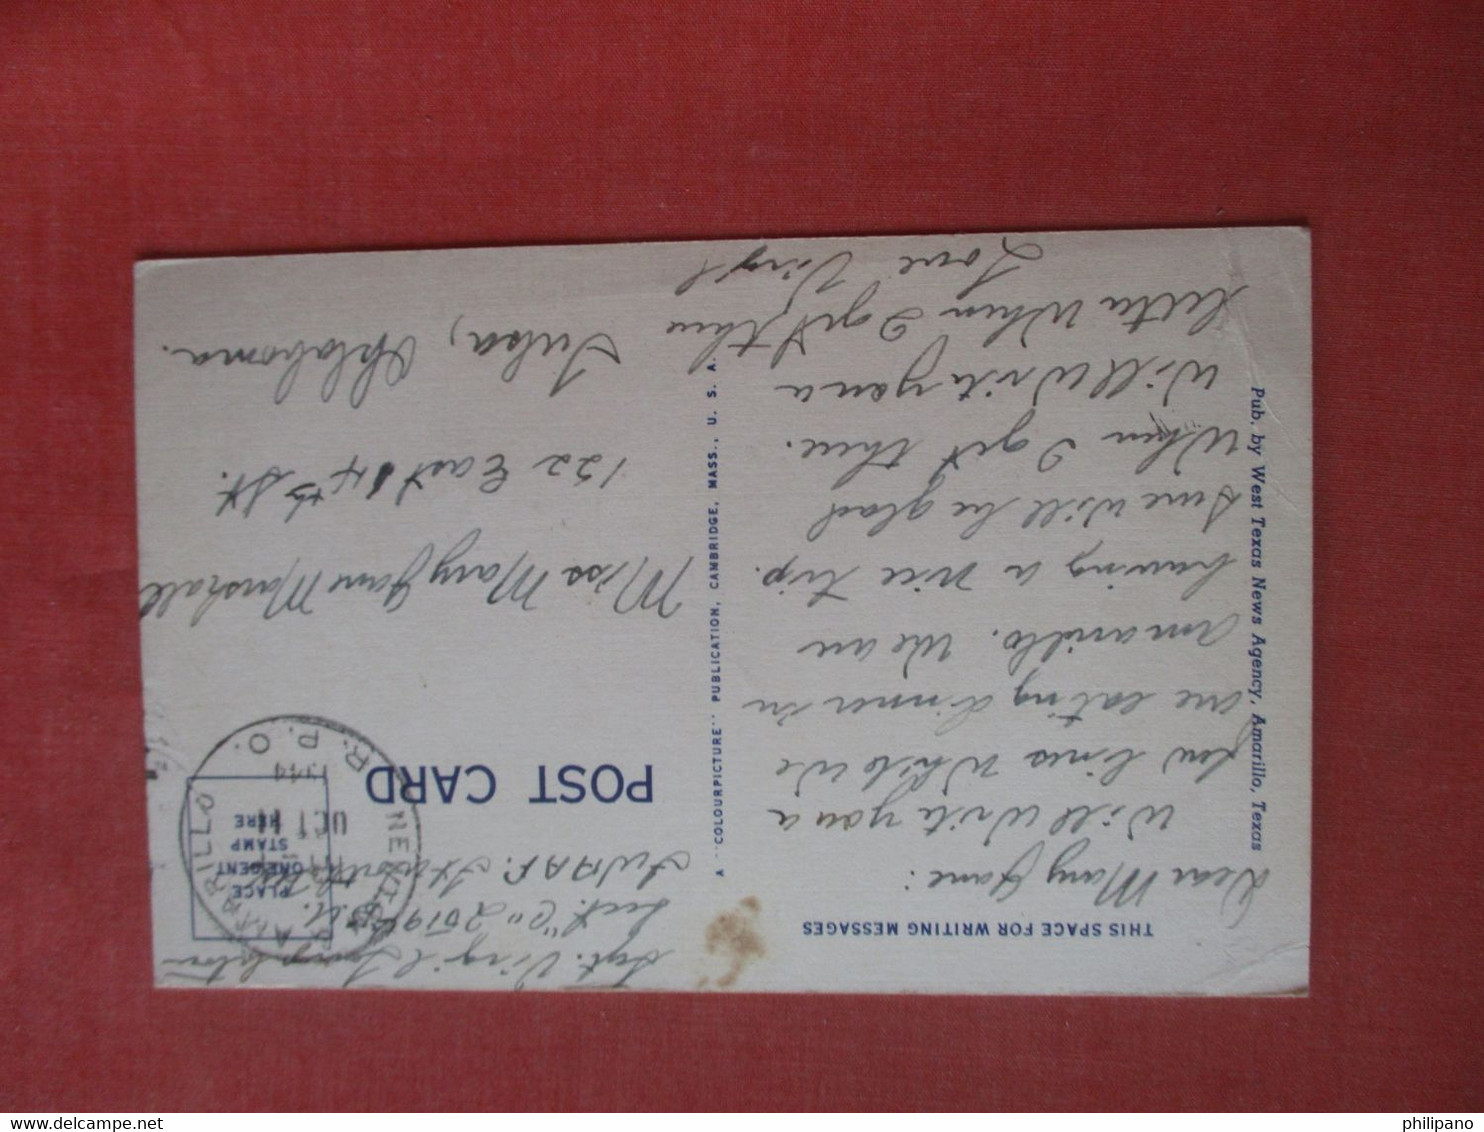 THIS SPACE FOR WRITING MESSAGES
Dear Mary Jane:
Will write you a
few lines while we
are eating dinner in
Amarillo. We are
having a nice trip.
Sure will be glad
when I get there.
Will write you a
letter when I get there
Love Virgil
Pub. by West Texas News Agency, Amarillo, Texas
A "COLOURPICTURE" PUBLICATION, CAMBRIDGE, MASS., U. S. A.
Sgt. Virgil
Sect. "C" 2519th B.U.
FWAAF. Ft Worth, Tex.
PLACE
ONE CENT
STAMP
HERE
AMARILLO
R. P. O.
OCT 11
1944
POST CARD
Miss Mary Jane Marshall
122 East 14th St.
Tulsa, Oklahoma.
philipano